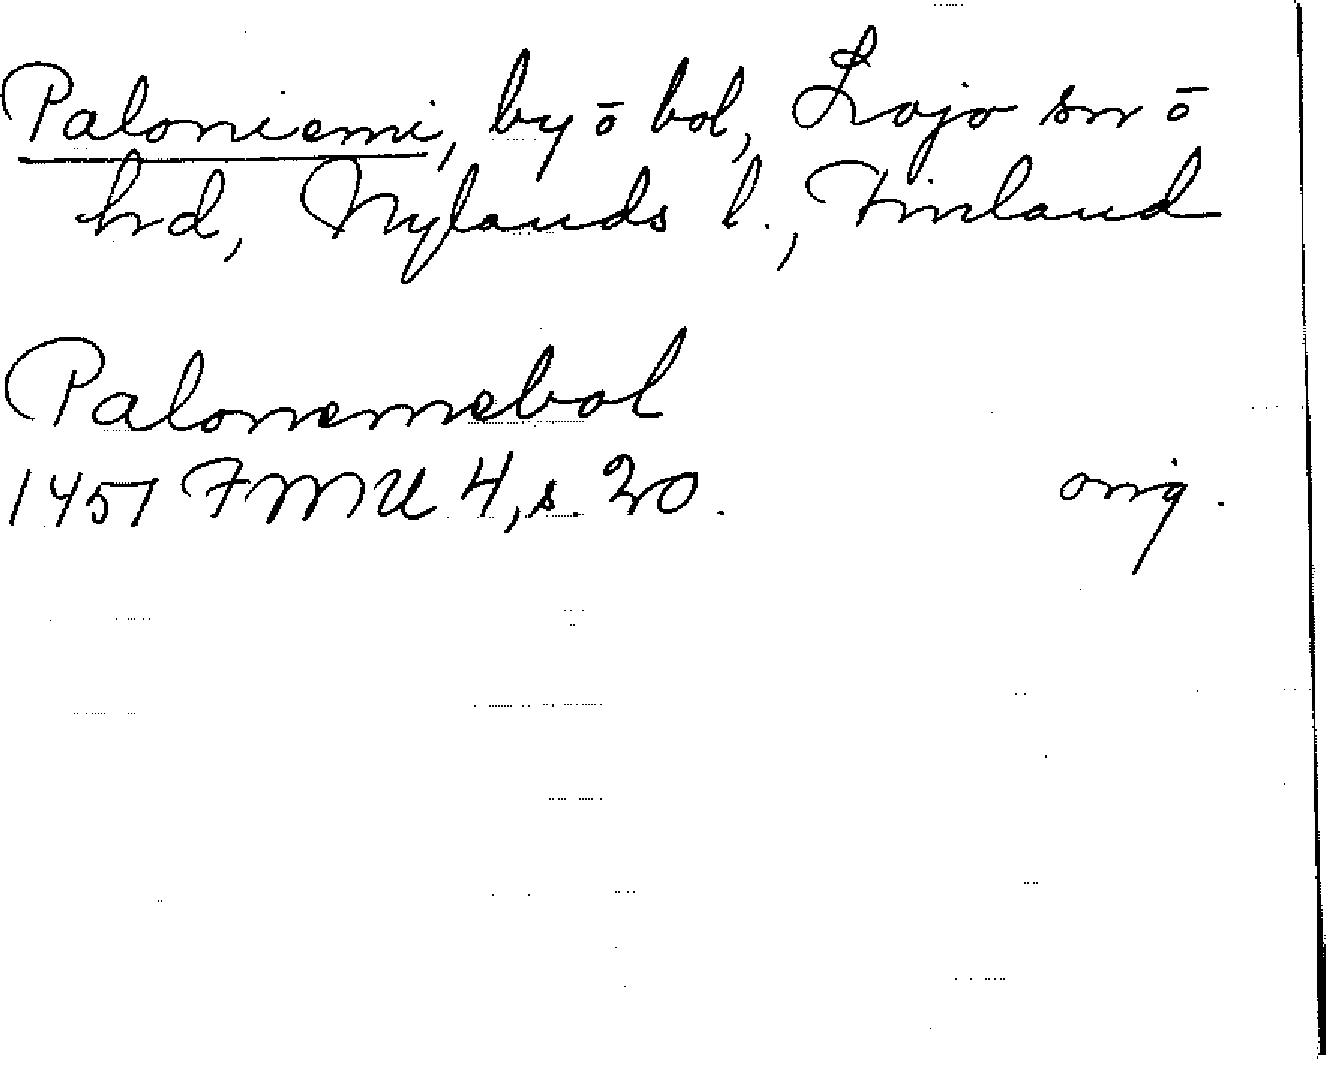 Paloniemi, by ō bol, Lojo sn ō
hd, Nylands l., Finland
Palonemebol
1451 FMU 4, s. 20. orig.